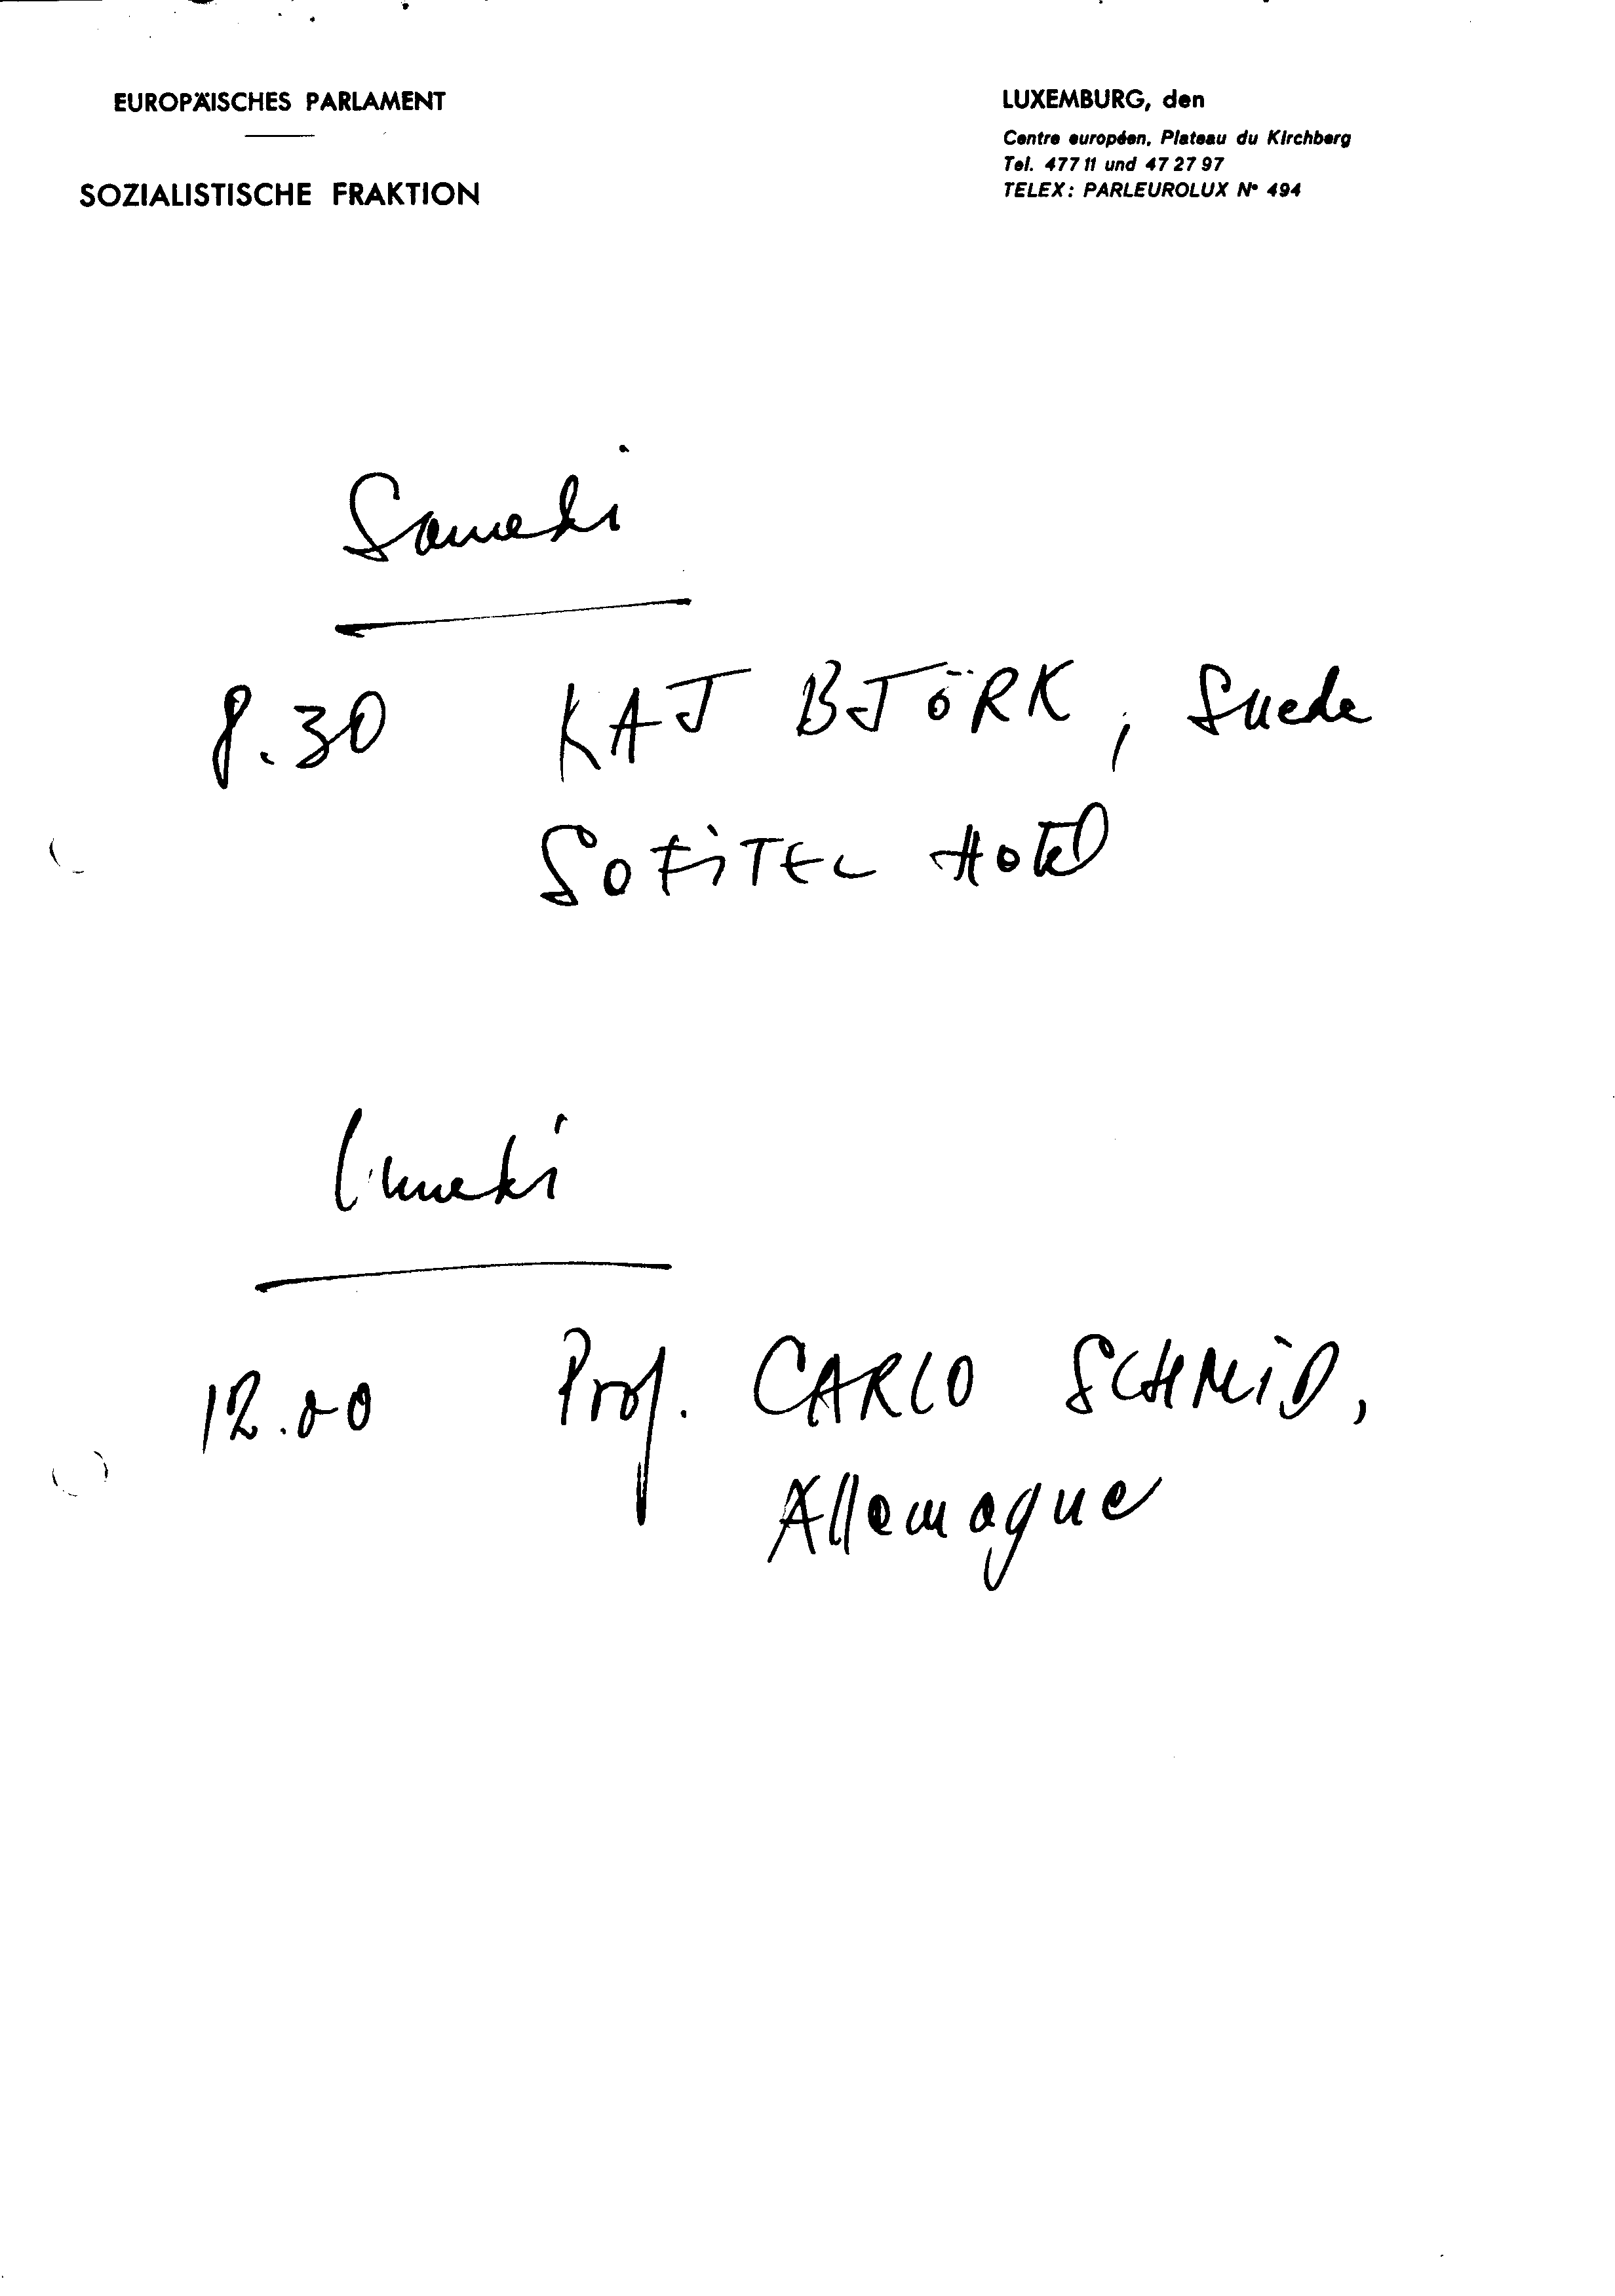 EUROPÄISCHES PARLAMENT
SOZIALISTISCHE FRAKTION
LUXEMBURG, den
Centre européen, Plateau du Kirchberg
Tel. 477 11 und 47 27 97
TELEX: PARLEUROLUX N° 494
Samedi
8.30 KAJ BJÖRK, Suede
SOFITEL Hotel
12.00 Prof. CARLO SCHMID,
Allemagne